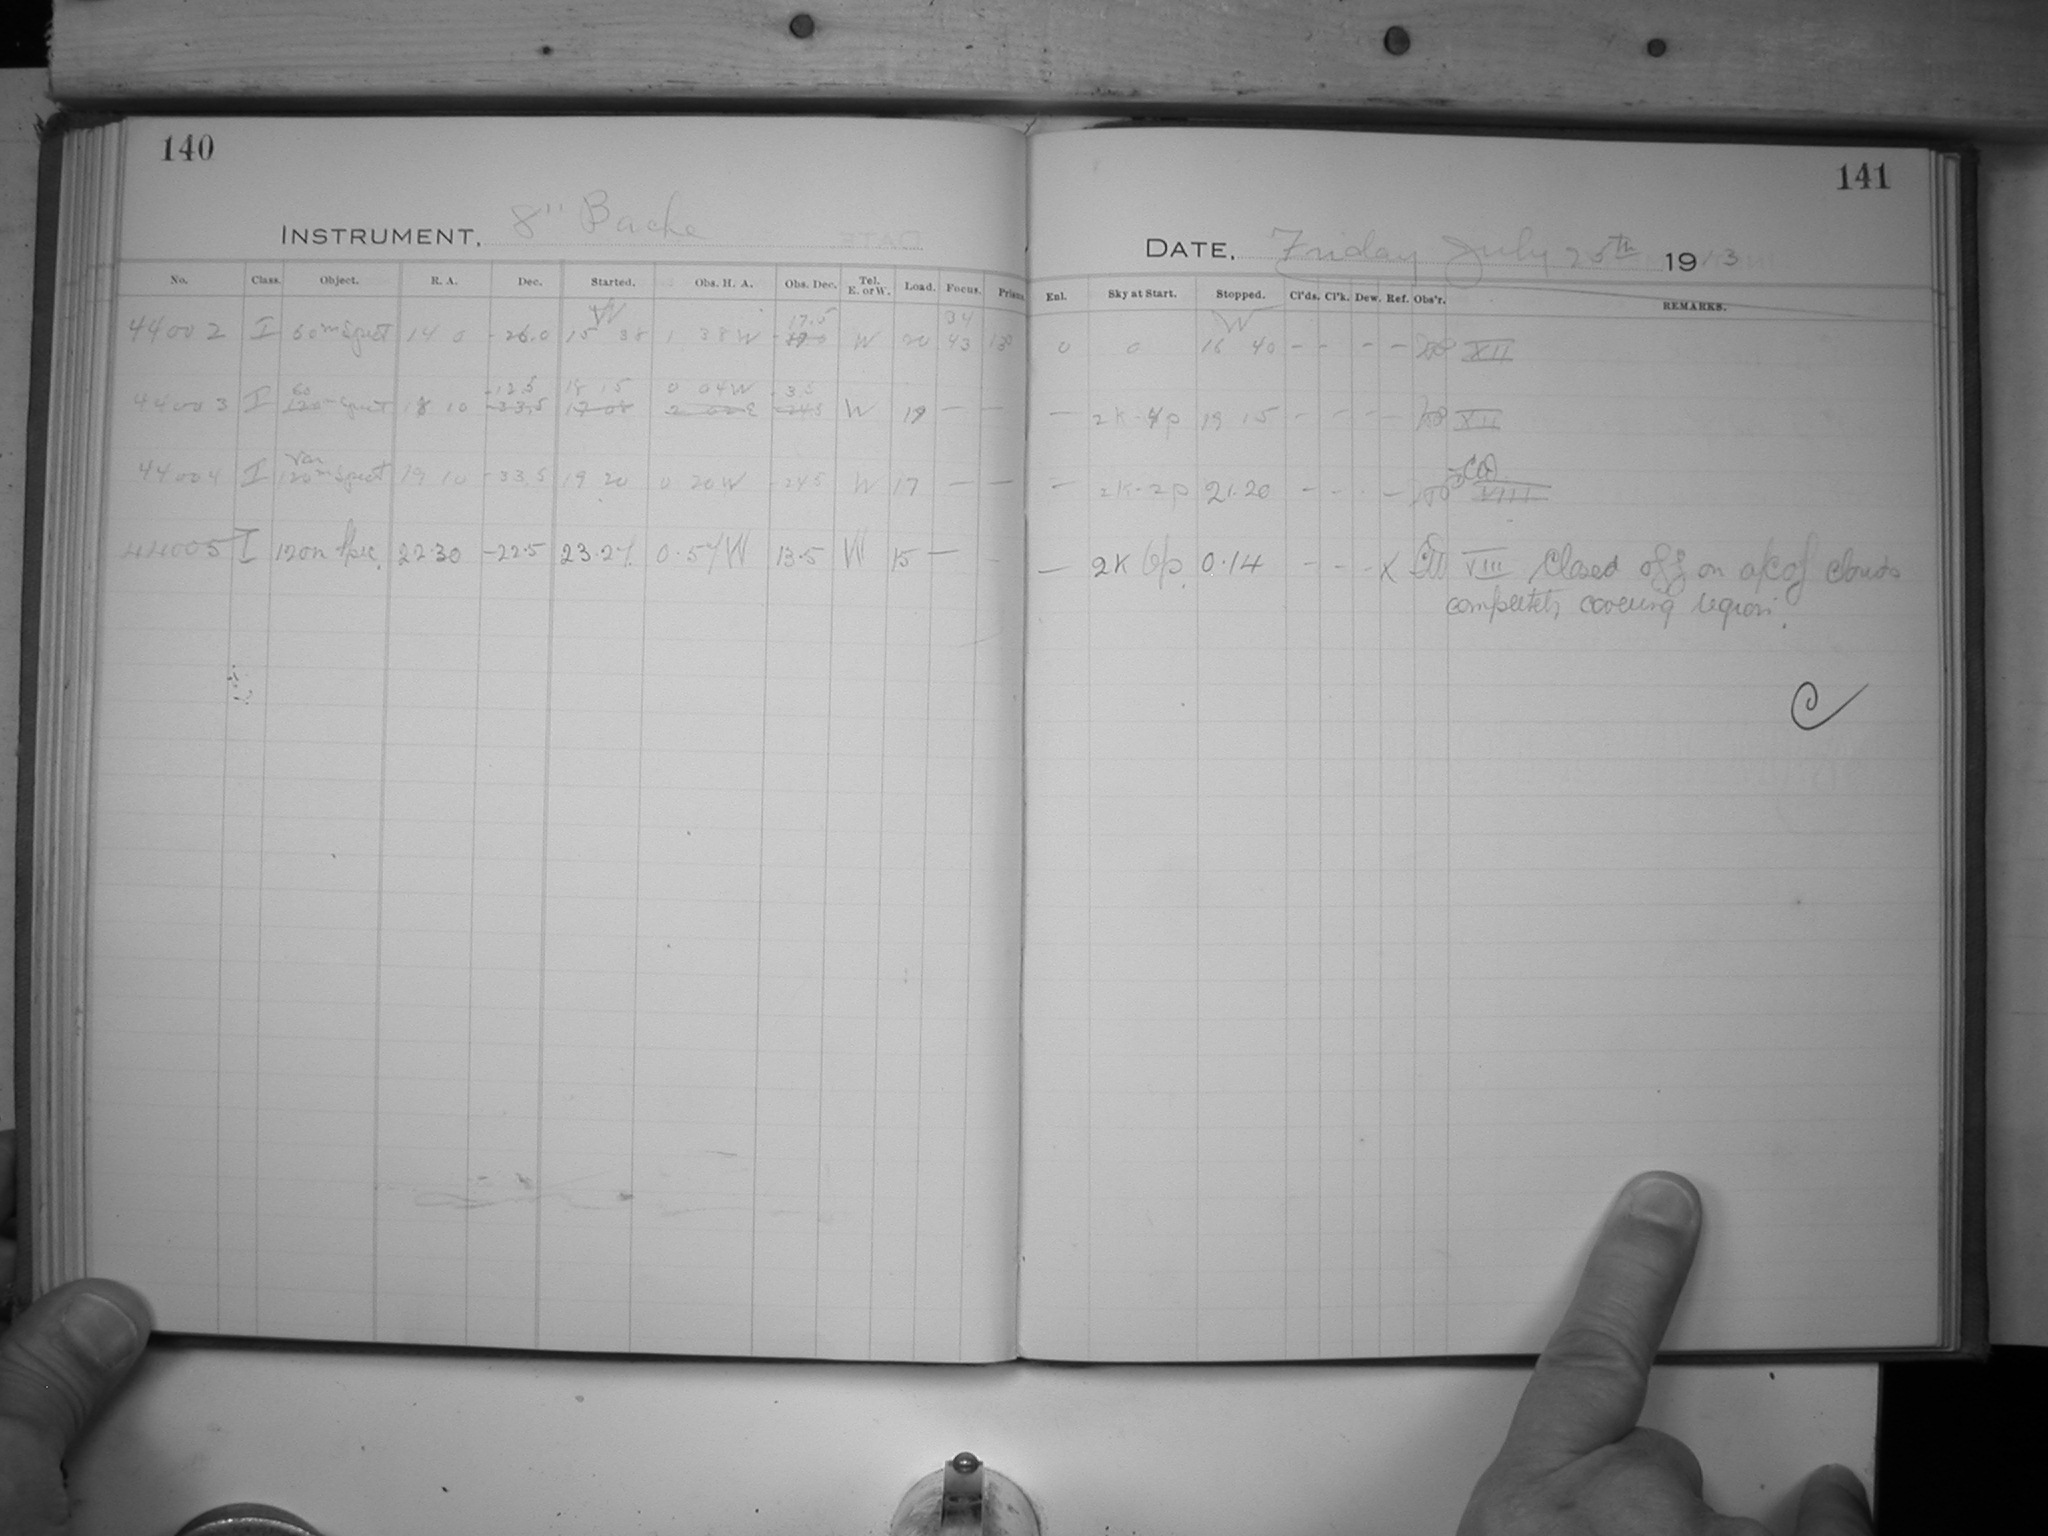 140
141
INSTRUMENT, 8" Bache
DATE, Friday July 25th 1913
No. Class. Object. R. A. Dec. Started. Obs. H. A. Obs. Dec. Tel. E. or W. Load. Focus. Prism.
Enl. Sky at Start. Stopped. Cl'ds. Cl'k. Dew. Ref. Obs'r. REMARKS.
W 17.5 34
W
44002 I 60m Spect 14 0 -26.0 15 38 1 38 W W 20 43
0 0 16 40 - - - - XII
60 -12.5 18 15 0 04 W -3.5
44003 I 120m Spect 18 10 -33.5 17 08 -24.5 W 19 — —
— 2K-4p 19 15 - - - - XII
Van
44004 I 120m Spect 19 10 -33.5 19 20 0 20 W -24.5 W 17 — —
— 2K-2p 21.20 - - - - VIII
44005 I 120m Spec. 22.30 -22.5 23.27 0.57 W 13.5 W 15 — -
— 2K 6p. 0.14 - - - X VIII Closed off on a/c of clouds
completely covering region.